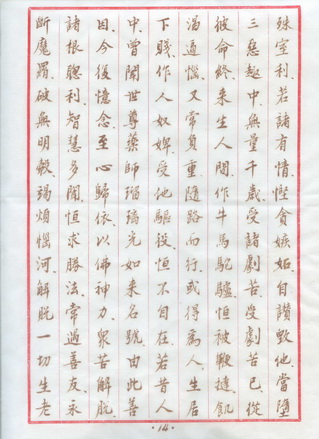 殊室利若諸有情慳貪嫉妬自讚毀他當墮
三惡趣中無量千歲受諸劇苦受劇苦已從
彼命終來生人間作牛馬駝驢恒被鞭撻飢
渴逼惱又常負重隨路而行或得爲人生居
下賤作人奴婢受他驅役恒不自在若昔人
中曾聞世尊藥師瑠璃光如來名號由此善
因今復憶念至心歸依以佛神力衆苦解脫
諸根聰利智慧多聞恒求勝法常遇善友永
斷魔羂破無明殼竭煩惱河解脫一切生老
·14·